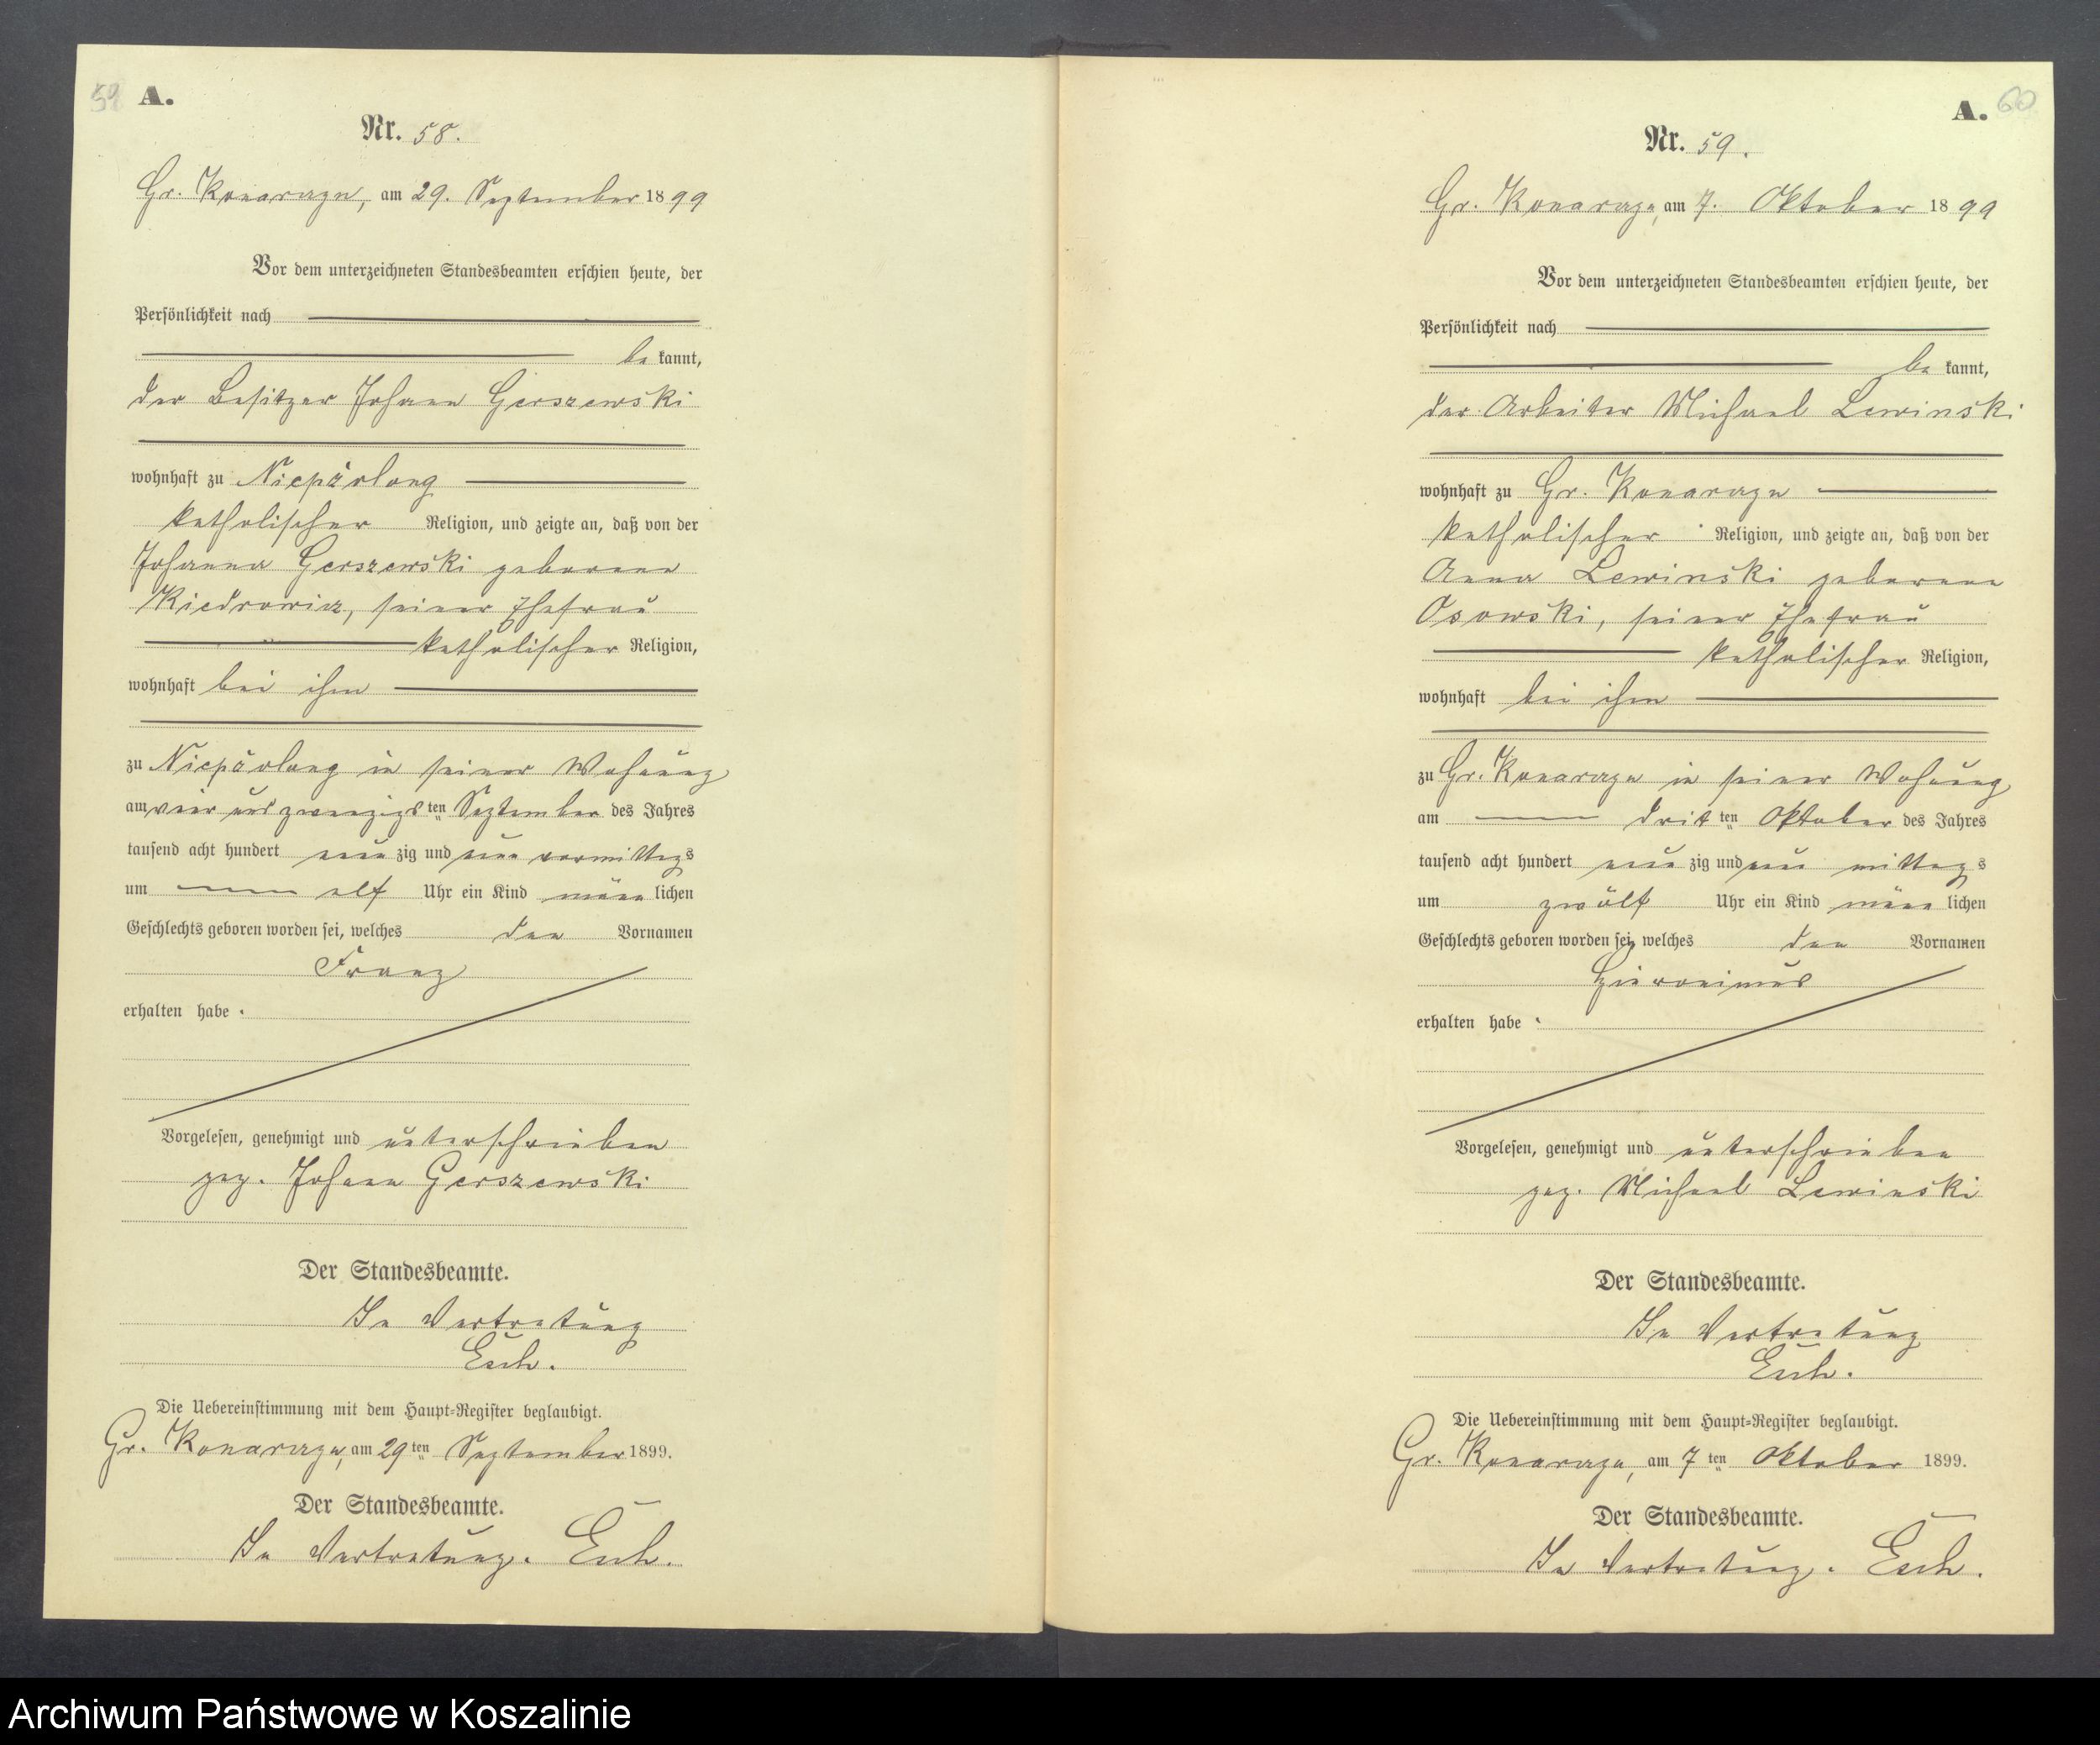 59 A.
Nr. 58.
Gr. Konarzyn, am 29. September 1899
Vor dem unterzeichneten Standesbeamten erschien heute, der
Persönlichkeit nach
be kannt,
der Besitzer Johann Gerszewski
wohnhaft zu Niepörlong
katholischer Religion, und zeigte an, daß von der
Johanna Gerszewski geborene
Kiedrowicz, seiner Ehefrau
katholischer Religion,
wohnhaft bei ihm
zu Niepörlong in seiner Wohnung
am vier und zwanzigsten September des Jahres
tausend acht hundert neun zig und neun vormittags
um elf Uhr ein Kind männ lichen
Geschlechts geboren worden sei, welches den Vornamen
Franz
erhalten habe.
Vorgelesen, genehmigt und unterschrieben
gez. Johann Gerszewski
Der Standesbeamte.
In Vertretung
Esch.
Die Uebereinstimmung mit dem Haupt-Register beglaubigt.
Gr. Konarzyn, am 29ten September 1899.
Der Standesbeamte.
In Vertretung. Esch.
A. 60
Nr. 59.
Gr. Konarzyn, am 7. Oktober 1899
Vor dem unterzeichneten Standesbeamten erschien heute, der
Persönlichkeit nach
be kannt,
der Arbeiter Michael Lewinski
wohnhaft zu Gr. Konarzyn
katholischer Religion, und zeigte an, daß von der
Anna Lewinski geborene
Osowski, seiner Ehefrau
katholischer Religion,
wohnhaft bei ihm
zu Gr. Konarzyn in seiner Wohnung
am dritten Oktober des Jahres
tausend acht hundert neun zig und neun mittags
um zwölf Uhr ein Kind männ lichen
Geschlechts geboren worden sei, welches den Vornamen
Hieronimus
erhalten habe.
Vorgelesen, genehmigt und unterschrieben
gez. Michael Lewinski
Der Standesbeamte.
In Vertretung
Esch.
Die Uebereinstimmung mit dem Haupt-Register beglaubigt.
Gr. Konarzyn, am 7ten Oktober 1899.
Der Standesbeamte.
In Vertretung. Esch.
Archiwum Państwowe w Koszalinie